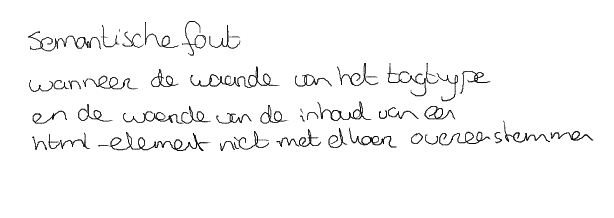 Semantische fout
wanneer de waarde van het tagtype
en de waarde van de inhoud van een
html-element niet met elkaar overeenstemmen